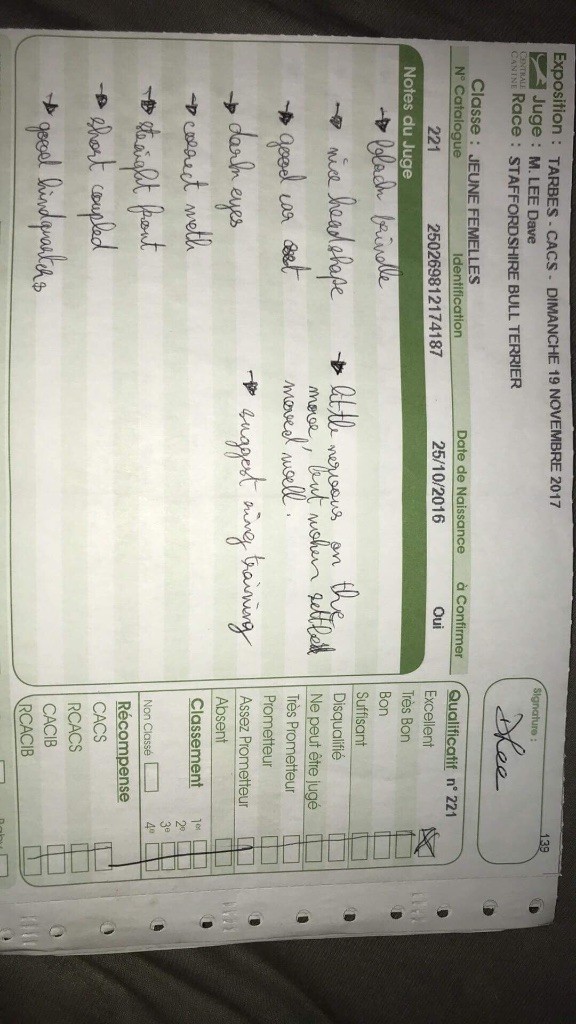 Exposition : TARBES - CACS - DIMANCHE 19 NOVEMBRE 2017
139
Juge : M. LEE Dave
Race : STAFFORDSHIRE BULL TERRIER
CENTRALE CANINE
Signature :
DLee
Classe : JEUNE FEMELLES
N° Catalogue Identification Date de Naissance à Confirmer
221 250269812174187 25/10/2016 Oui
Notes du Juge
→ black brindle
→ nice headshape
→ good ear set
→ dark eyes
→ correct mouth
→ straight front
→ short coupled
→ good hindquarters
→ little nervous on the
move, but when settled
moved well.
→ suggest ring training
Qualificatif n° 221
Excellent
Très Bon
Bon
Suffisant
Disqualifié
Ne peut être jugé
Très Prometteur
Prometteur
Assez Prometteur
Absent
Classement
1er
2e
3e
Non Classé
4e
Récompense
CACS
RCACS
CACIB
RCACIB